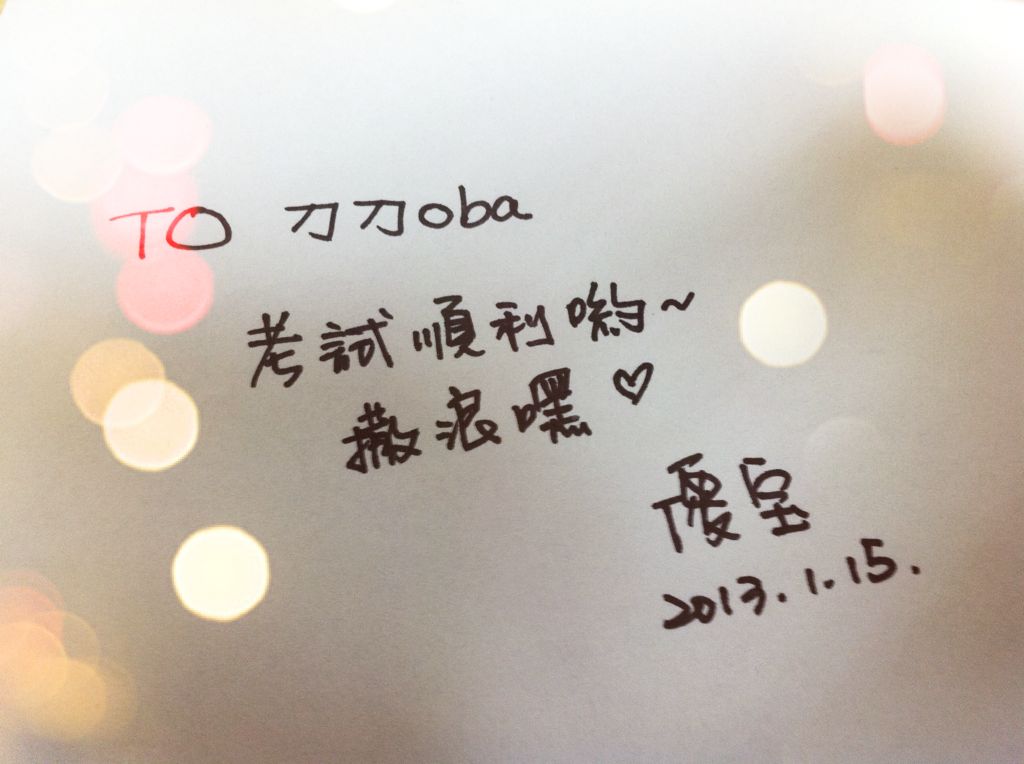 TO 刀刀oba
考試順利喲~
撒浪嘿♡
優室
2013.1.15.